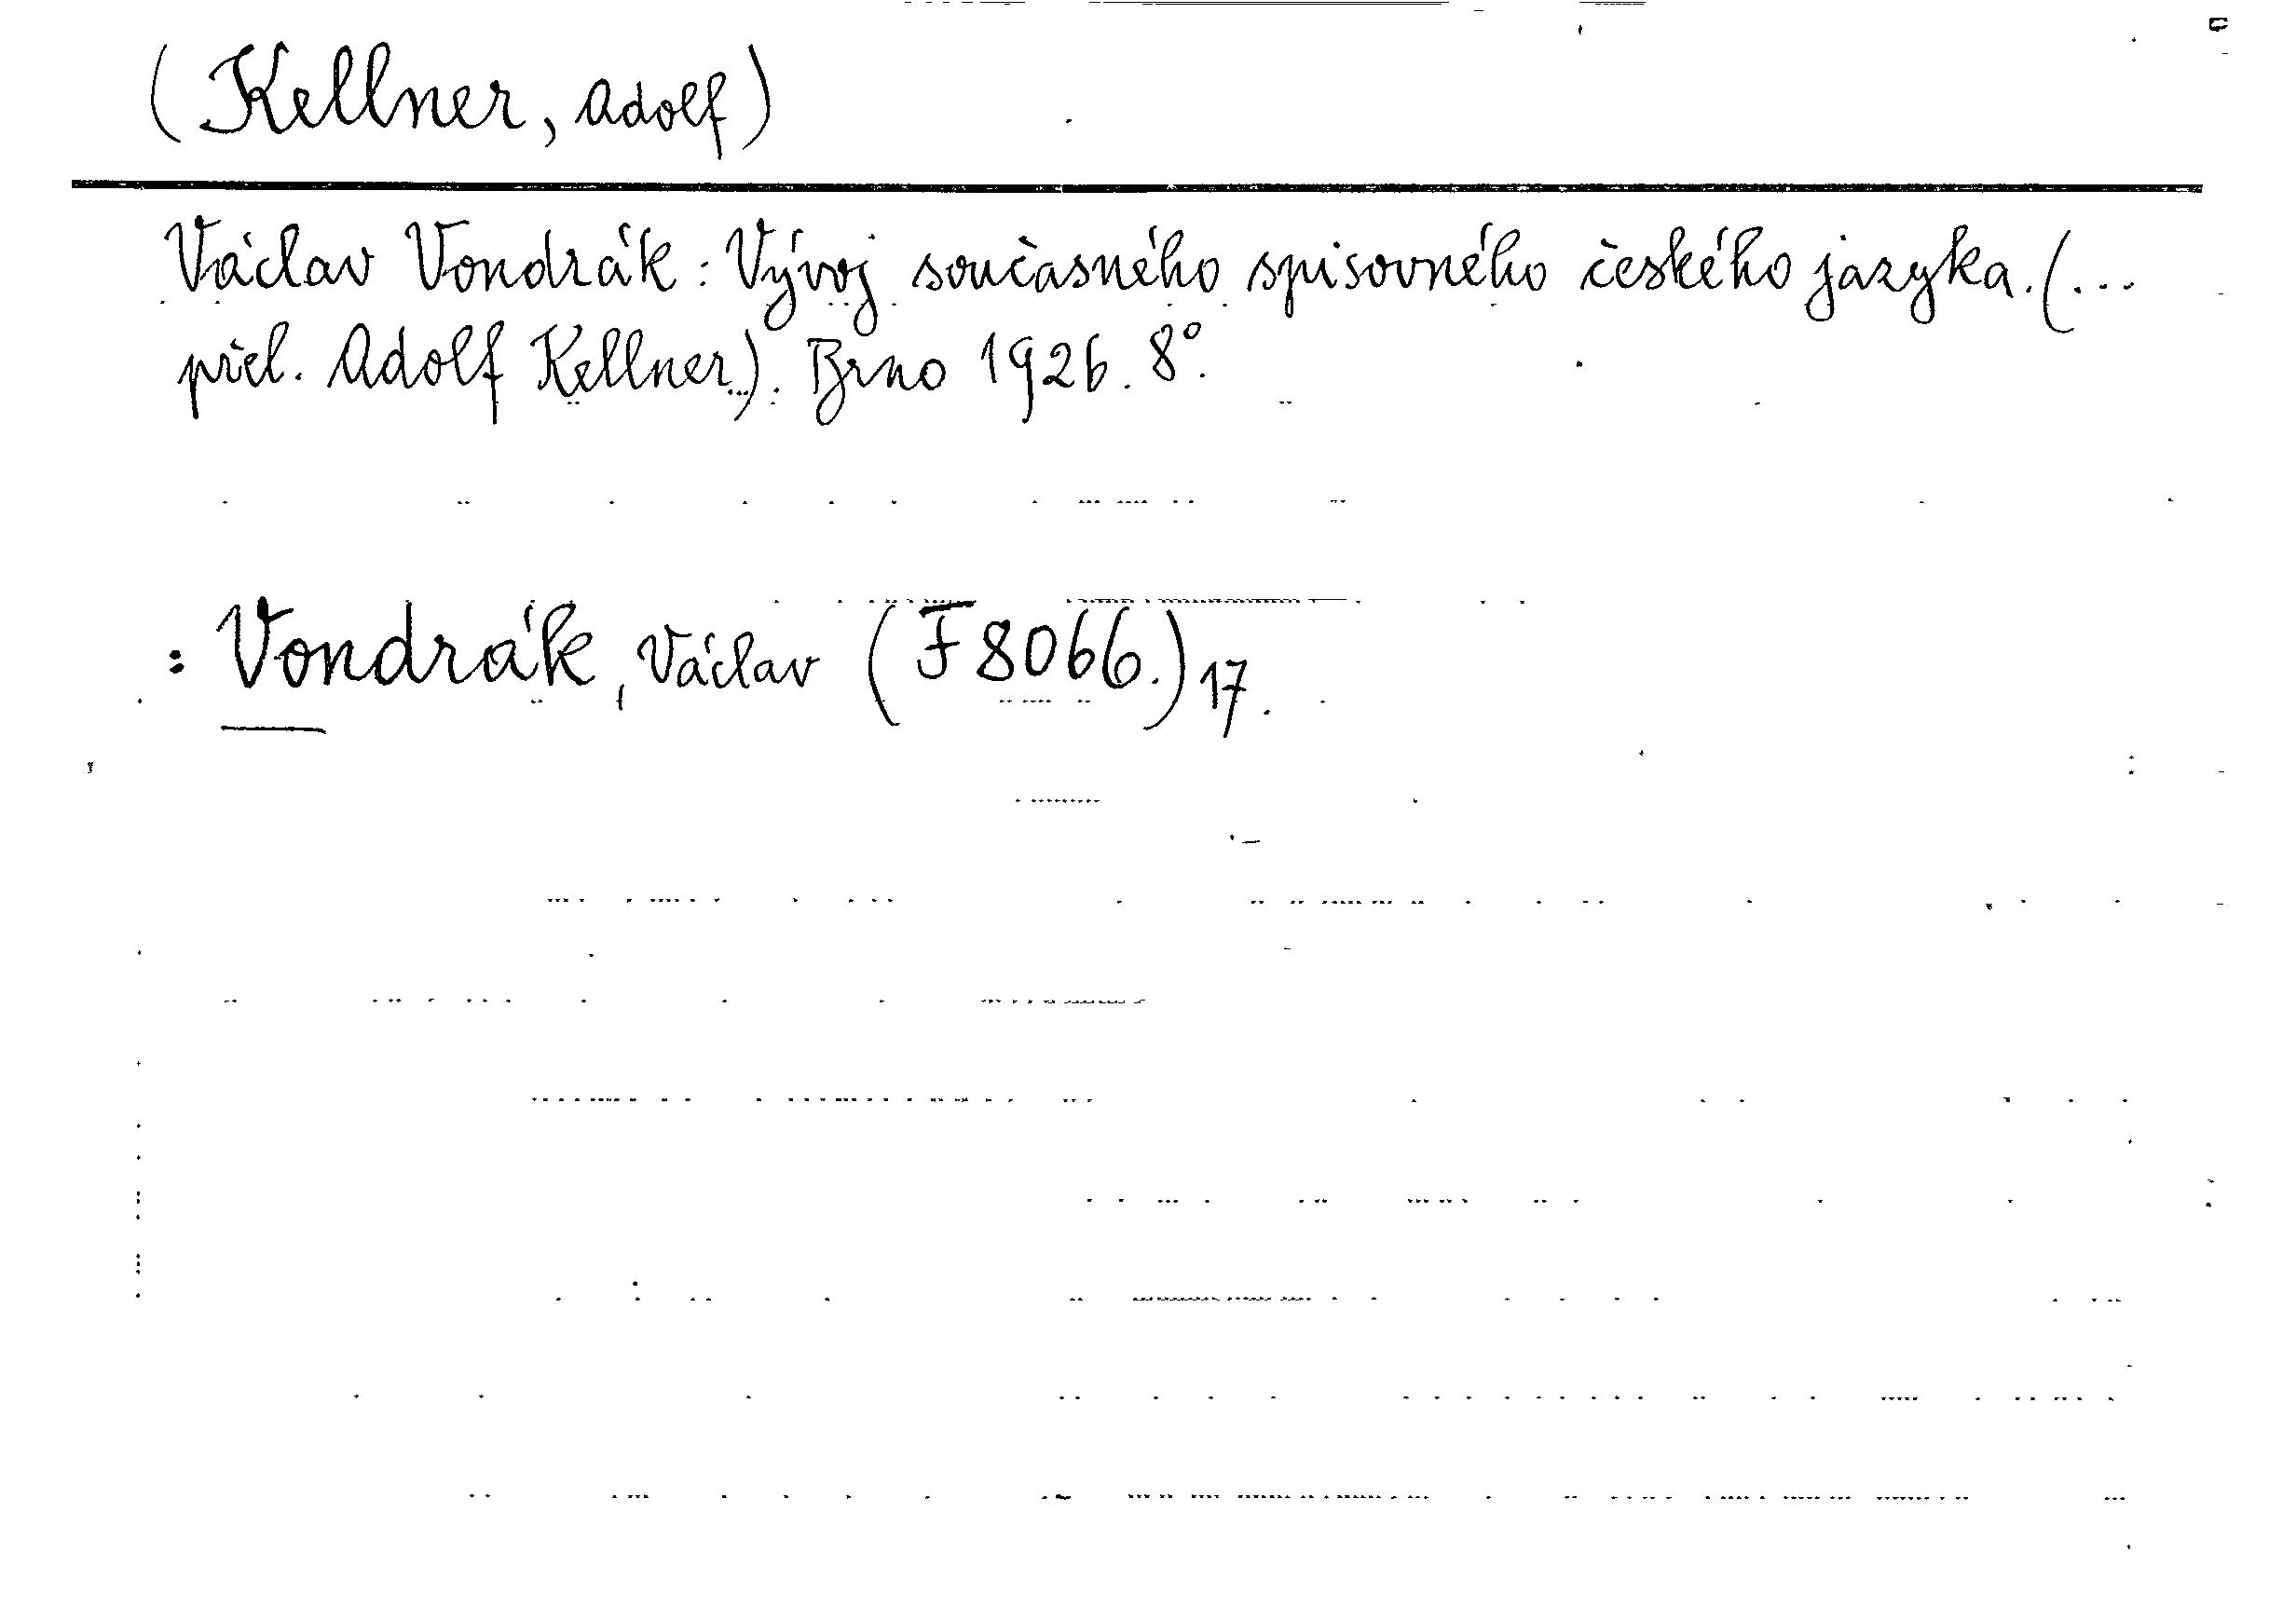 (Kellner, Adolf)
Václav Vondrák: Vývoj současného spisovného českého jazyka. (...
přel. Adolf Kellner). Brno 1926. 8°.
: Vondrák, Václav (F 8066.) 17.